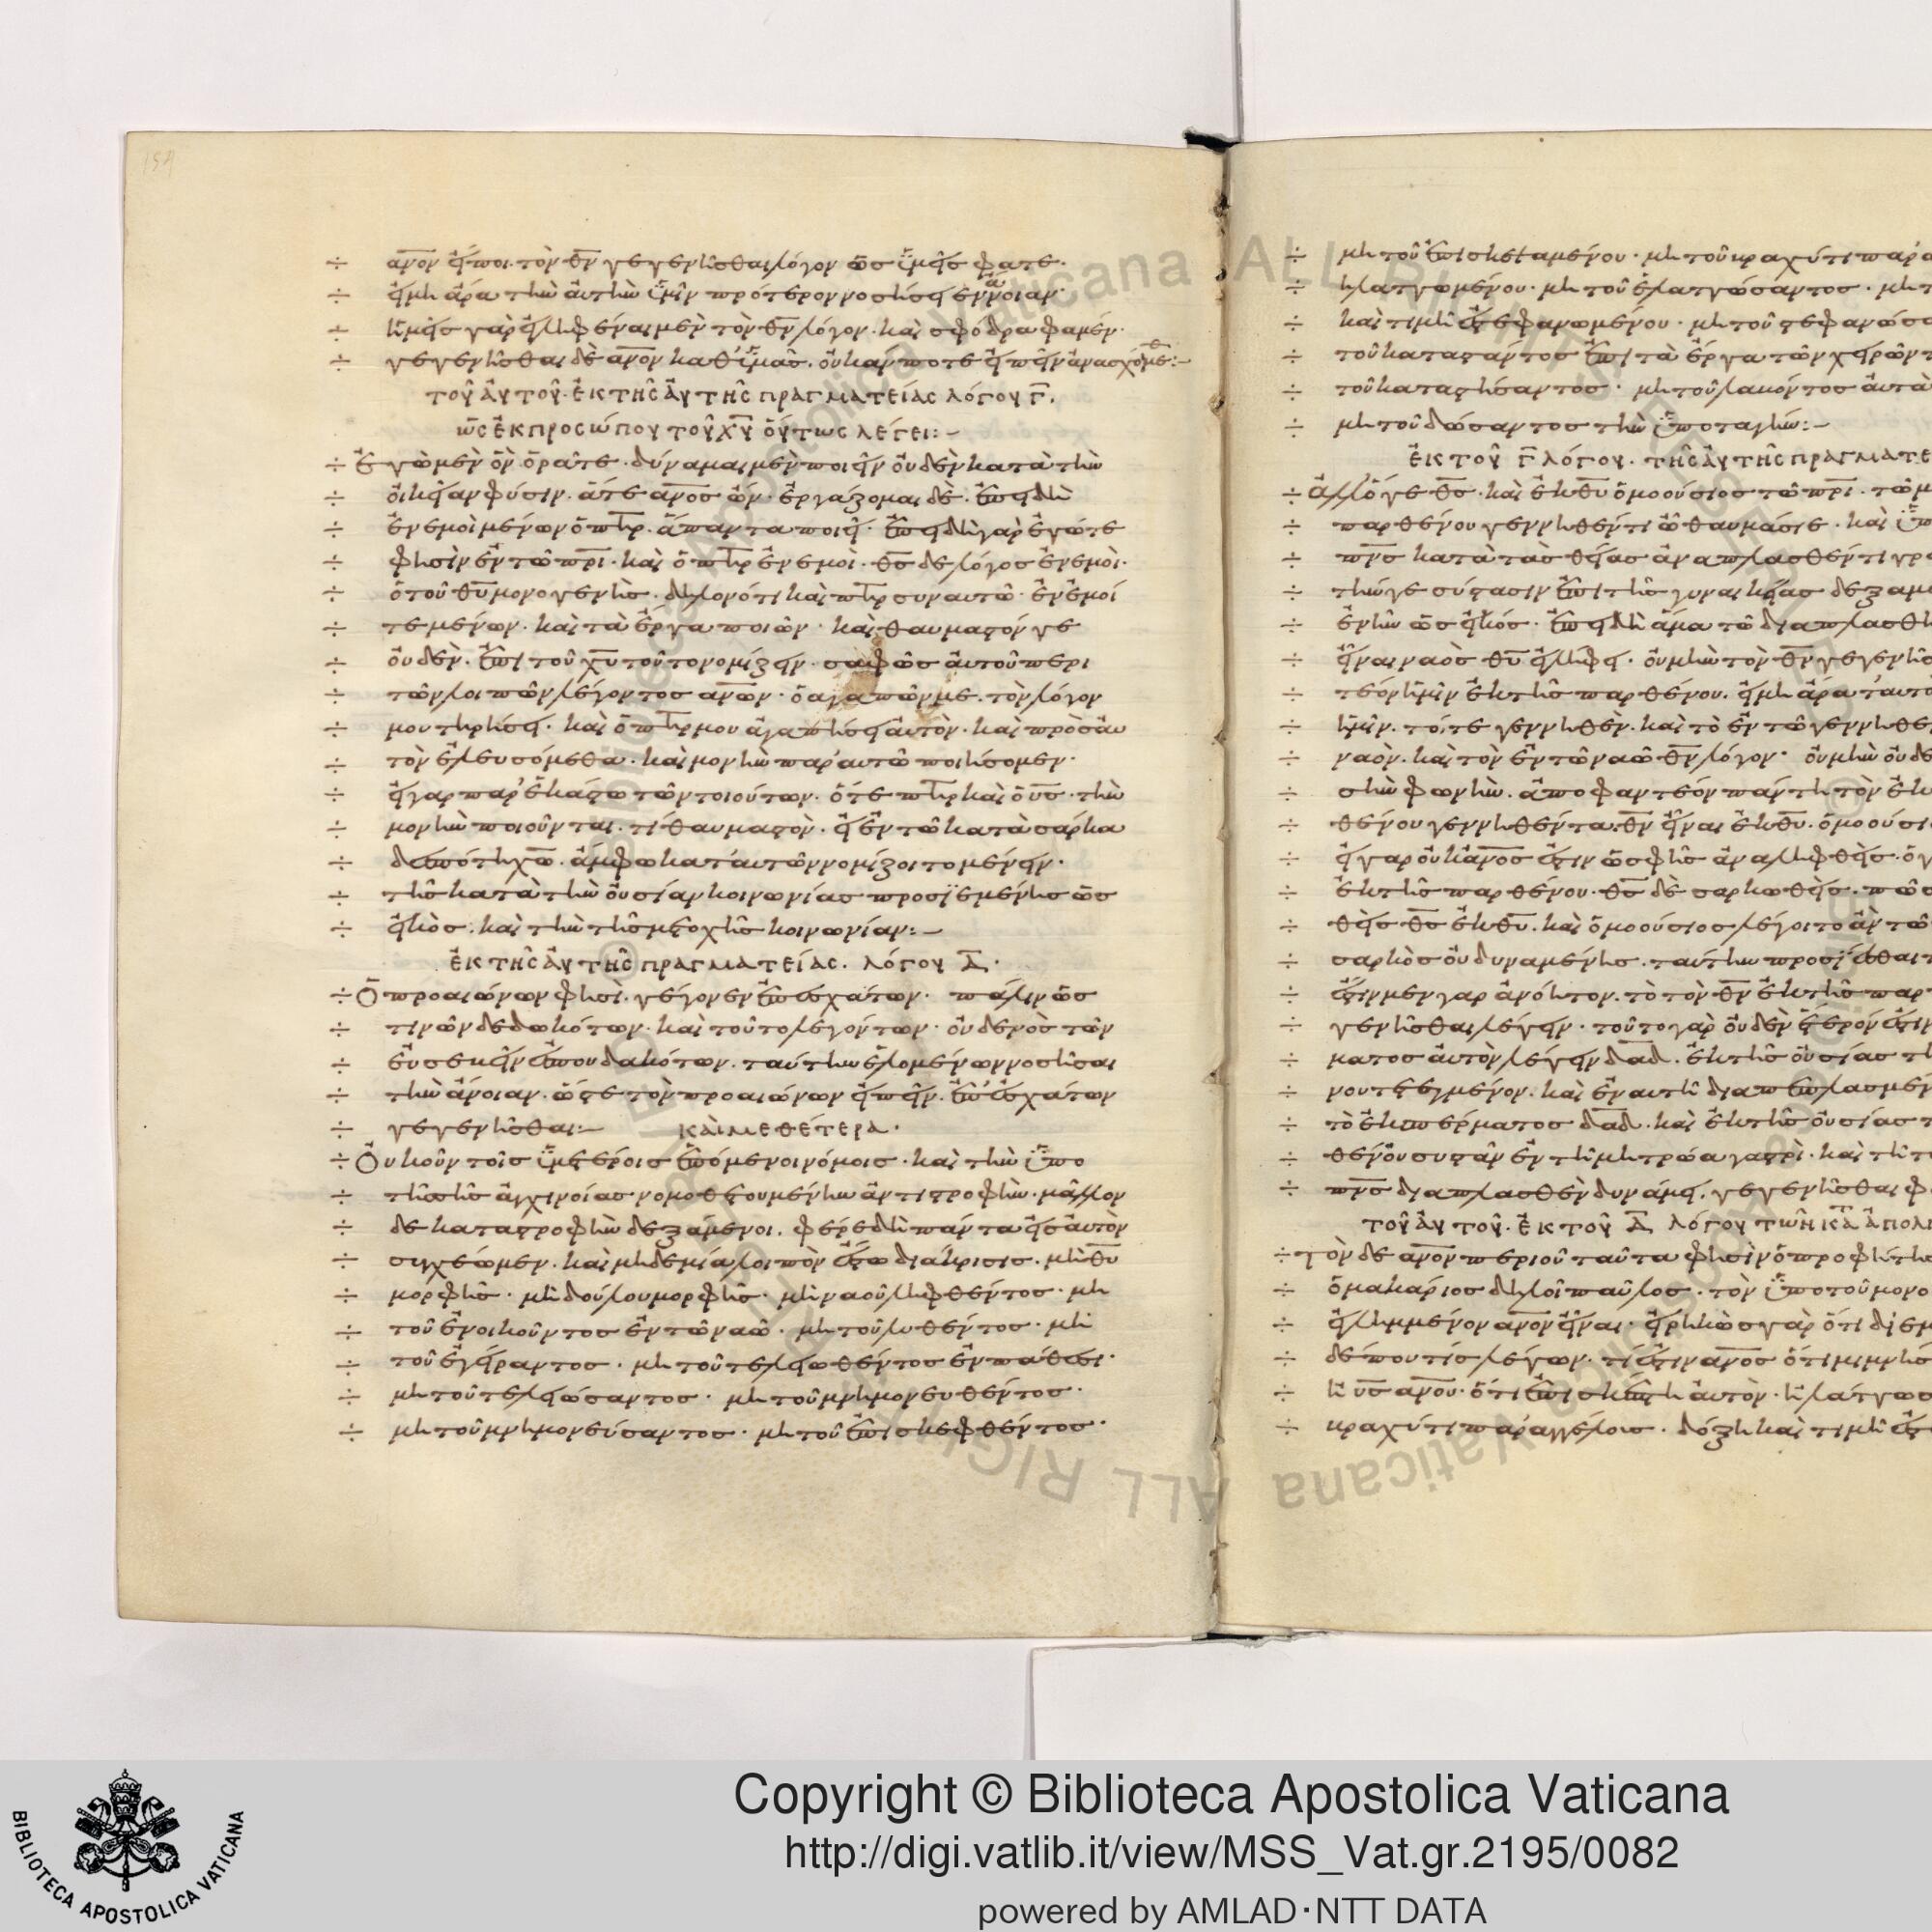 ανον εἴποι. τὸν θν γεγενῆσθαι λόγον ὡς ὑμεῖς φατε.
εἰ μὴ ἄρα τὴν αὐτὴν ὑμῖν πρότερον νοσήσει ἄνοιαν.
ἡμεῖς γὰρ εἰληφέναι μὲν τὸν θν λόγον. καὶ σφόδρα φαμέν.
γεγενῆσθαι δὲ ανον καθ' ὑμᾶς. οὐκ ἄν ποτε εἰπεῖν ἀνασχοίμεθα:–
τοῦ αὐτοῦ. ἐκ τῆς αὐτῆς πραγματείας λόγου γ.
ὡς ἐκ προσώπου τοῦ χυ οὕτως λέγει:–
ἐγὼ μὲν ὃν ὁρᾶτε. δύναμαι μὲν ποιεῖν οὐδὲν κατὰ τὴν
οἰκείαν φύσιν. ἅτε ανος ὤν. ἐργάζομαι δὲ. ἐπειδὴ
ἐν ἐμοὶ μένων ὁ πηρ. ἅπαντα ποιεῖ. ἐπειδὴ γὰρ ἐγώ τε
φησὶν ἐν τῷ πρι. καὶ ὁ πηρ ἐν ἐμοὶ. θς δε λόγος ἐν ἐμοὶ.
ὁ τοῦ θυ μονογενὴς. δῆλον ὅτι καὶ πηρ συν αυτῷ ἐν ἐμοί
τε μένων. καὶ τὰ ἔργα ποιῶν. καὶ θαυμαστόν γε
οὐδὲν. ἐπὶ τοῦ χυ τοῦτο νομίζειν. σαφῶς αὐτοῦ περι
τῶν λοιπῶν λέγοντος ανων. ὁ αγαπῶν με. τὸν λόγον
μου τηρήσει. καὶ ὁ πηρ μου ἀγαπήσει αὐτὸν. καὶ πρὸς αὐ
τὸν ἐλευσόμεθα. καὶ μονὴν παρ' αυτῷ ποιήσομεν.
εἰ γαρ παρ' ἑκάστω τῶν τοιούτων. ὅ τε πηρ καὶ ὁ υς. τὴν
μονὴν ποιοῦνται. τί θαυμαστὸν. εἰ ἐν τῷ κατὰ σάρκα
δεσπότη χω. ἄμφω κατ' αυτὸν νομίζοιτο μένειν.
τῆς κατὰ τὴν οὐσίαν κοινωνίας προσϊεμένης ὡς
εἰκὸς. καὶ τὴν τῆς μετοχῆς κοινωνίαν:–
ἐκ τῆς αὐτῆς πραγματείας. λόγου δ.
ὁ προαιώνων φησὶ. γέγονεν ἐπ' εσχάτων. πάλιν ὡς
τινῶν δεδωκότων. καὶ τοῦτο λεγόντων. οὐδενὸς τῶν
εὐσεβεῖν ἐσπουδακότων. ταύτην ἑλομένων νοσῆσαι
τὴν ἄνοιαν. ὥστε τὸν προαιώνων εἰπεῖν. ἐπ' ἐσχάτων
γεγενῆσθαι:– καὶ μεθέτερα.
οὐκοῦν τοῖς ὑμετέροις ἑπόμενοι νόμοις. καὶ τὴν ὑπο
τῆς σῆς ἀγχινοίας νομοθετουμένην ἀντιστροφὴν. μᾶλλον
δε καταστροφὴν δεξάμενοι. φέρε δὴ πάντα εἰς αὐτὸν
συγχέωμεν. καὶ μηδεμία λοιπὸν ἔστω διάκρισις. μὴ θυ
μορφῆς. μὴ δούλου μορφῆς. μὴ ναοῦ ληφθέντος. μὴ
τοῦ ἐνοικοῦντος ἐν τῷ ναῷ. μὴ τοῦ λυθέντος. μὴ
τοῦ ἐγείραντος. μὴ τοῦ τελειωθέντος ἐν πάθεσι.
μὴ τοῦ τελειώσαντος. μὴ τοῦ μνημονευθέντος.
μὴ τοῦ μνημονεύσαντος. μὴ τοῦ ἐπισκεφθέντος.
μὴ τοῦ ἐπισκεψαμένου. μὴ τοῦ βραχύ τι παρ
ἠλαττωμένου. μὴ τοῦ ἐλαττώσαντος. μὴ
καὶ τιμῆ ἐστεφανωμένου. μὴ τοῦ
τοῦ καταστάντος ἐπὶ τὰ ἔργα τῶν χειρῶν
τοῦ καταστήσαντος. μὴ τοῦ λαβόντος αὐτὰ
μὴ τοῦ δώσαντος τὴν ὑποταγήν:–
ἐκ τοῦ γ λόγου. τῆς αὐτῆς
ἀλλ' ὅ γε θς. καὶ ἐκ θυ ὁμοούσιος τῷ πρι. τῷ
παρθένου γεννηθέντι ὦ θαυμάσιε. καὶ
πνς κατὰ τὰς θείας ἀναπλασθέντι
τήν γε σύστασιν ἐπὶ τῆς γυναικείας
ἐνῆν ὡς εἰκός. ἐπειδὴ ἅμα τῷ
εἶναι ναὸς θυ εἴληφε. οὐ μὴν τὸν θν
τέον ἡμῖν ἐκ τῆς παρθένου. εἰ μὴ ἄρα
ἡμῖν. τό, τε γεννηθὲν. καὶ τὸ ἐν τῷ
ναὸν. καὶ τὸν ἐν τῷ ναῷ θν λόγον. οὐ μὴν
σὴν φωνὴν. ἀποφαντέον πάντη τὸν
θένου γεννηθέντα. θν εἶναι ἐκ θυ.
εἰ γαρ οὐκ ἄνος ἐστιν ὡς φὴς ἀναληφθεὶς.
ἐκ τῆς παρθένου. θς δὲ σαρκωθεὶς. πῶς
θεὶς θς ἐκ θυ. καὶ ὁμοούσιος λέγοιτο ἂν
σαρκὸς οὐ δυναμένης. ταύτην
ἔστιν μεν γαρ ἀνόητον. τὸ τὸν θν ἐκ τῆς
γενῆσθαι λέγειν. τοῦτο γὰρ οὐδὲν ἕτερόν
ματος αὐτὸν λέγειν δαδ. ἐκ τῆς οὐσίας
νου τετεγμένον. καὶ ἐν αυτῆ
τὸ ἐκ σπέρματος δαδ. καὶ ἐκ τῆς οὐσίας
θένου συστὰν ἐν τῆ μητρώα γαστρὶ. καὶ
πνς διαπλασθὲν δυνάμει. γεγενῆσθαι
τοῦ αὐτοῦ. ἐκ τοῦ δ λόγου τῶν κατὰ
τὸν δε ανον περι οὗ ταῦτα φησὶν ὁ
ὁ μακάριος δηλοῖ παῦλος. τὸν ὑπο τοῦ
εἰλημμένον ανον εἶναι. εἰρηκὼς γὰρ ὅτι
δέ που τίς λέγων. τί ἐστιν ανος ὅτι
ἢ υς ανου. ὅτι ἐπισκέπτη αὐτὸν.
βραχύ τι παρ' αγγέλοις. δόξη καὶ τιμῆ
Copyright © Biblioteca Apostolica Vaticana
http://digi.vatlib.it/view/MSS_Vat.gr.2195/0082
powered by AMLAD·NTT DATA
BIBLIOTECA APOSTOLICA VATICANA